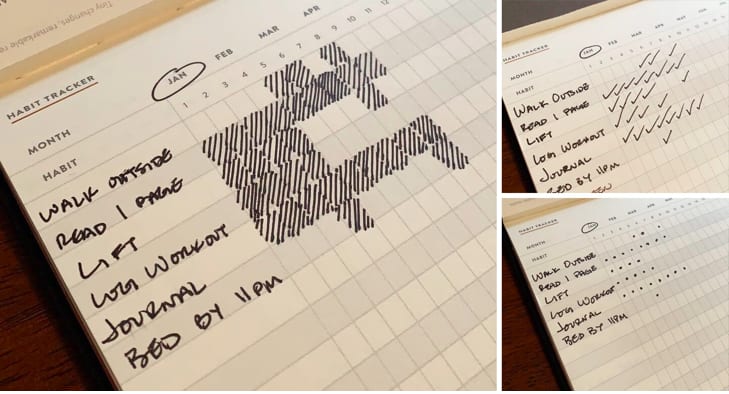 Tiny changes, remarkable re
HABIT TRACKER
MONTH JAN FEB MAR APR
HABIT 1 2 3 4 5 6 7 8 9 10 11 12
WALK OUTSIDE
READ 1 PAGE
LIFT
LOG WORKOUT
JOURNAL
BED BY 11PM
HABIT TRACKER
MONTH JAN FEB MAR APR MAY JUN
HABIT
WALK OUTSIDE
READ 1 PAGE
LIFT
LOG WORKOUT
JOURNAL
BED BY 11PM
HABIT TRACKER
MONTH JAN FEB MAR APR MAY JUN
HABIT
WALK OUTSIDE
READ 1 PAGE
LIFT
LOG WORKOUT
JOURNAL
BED BY 11PM